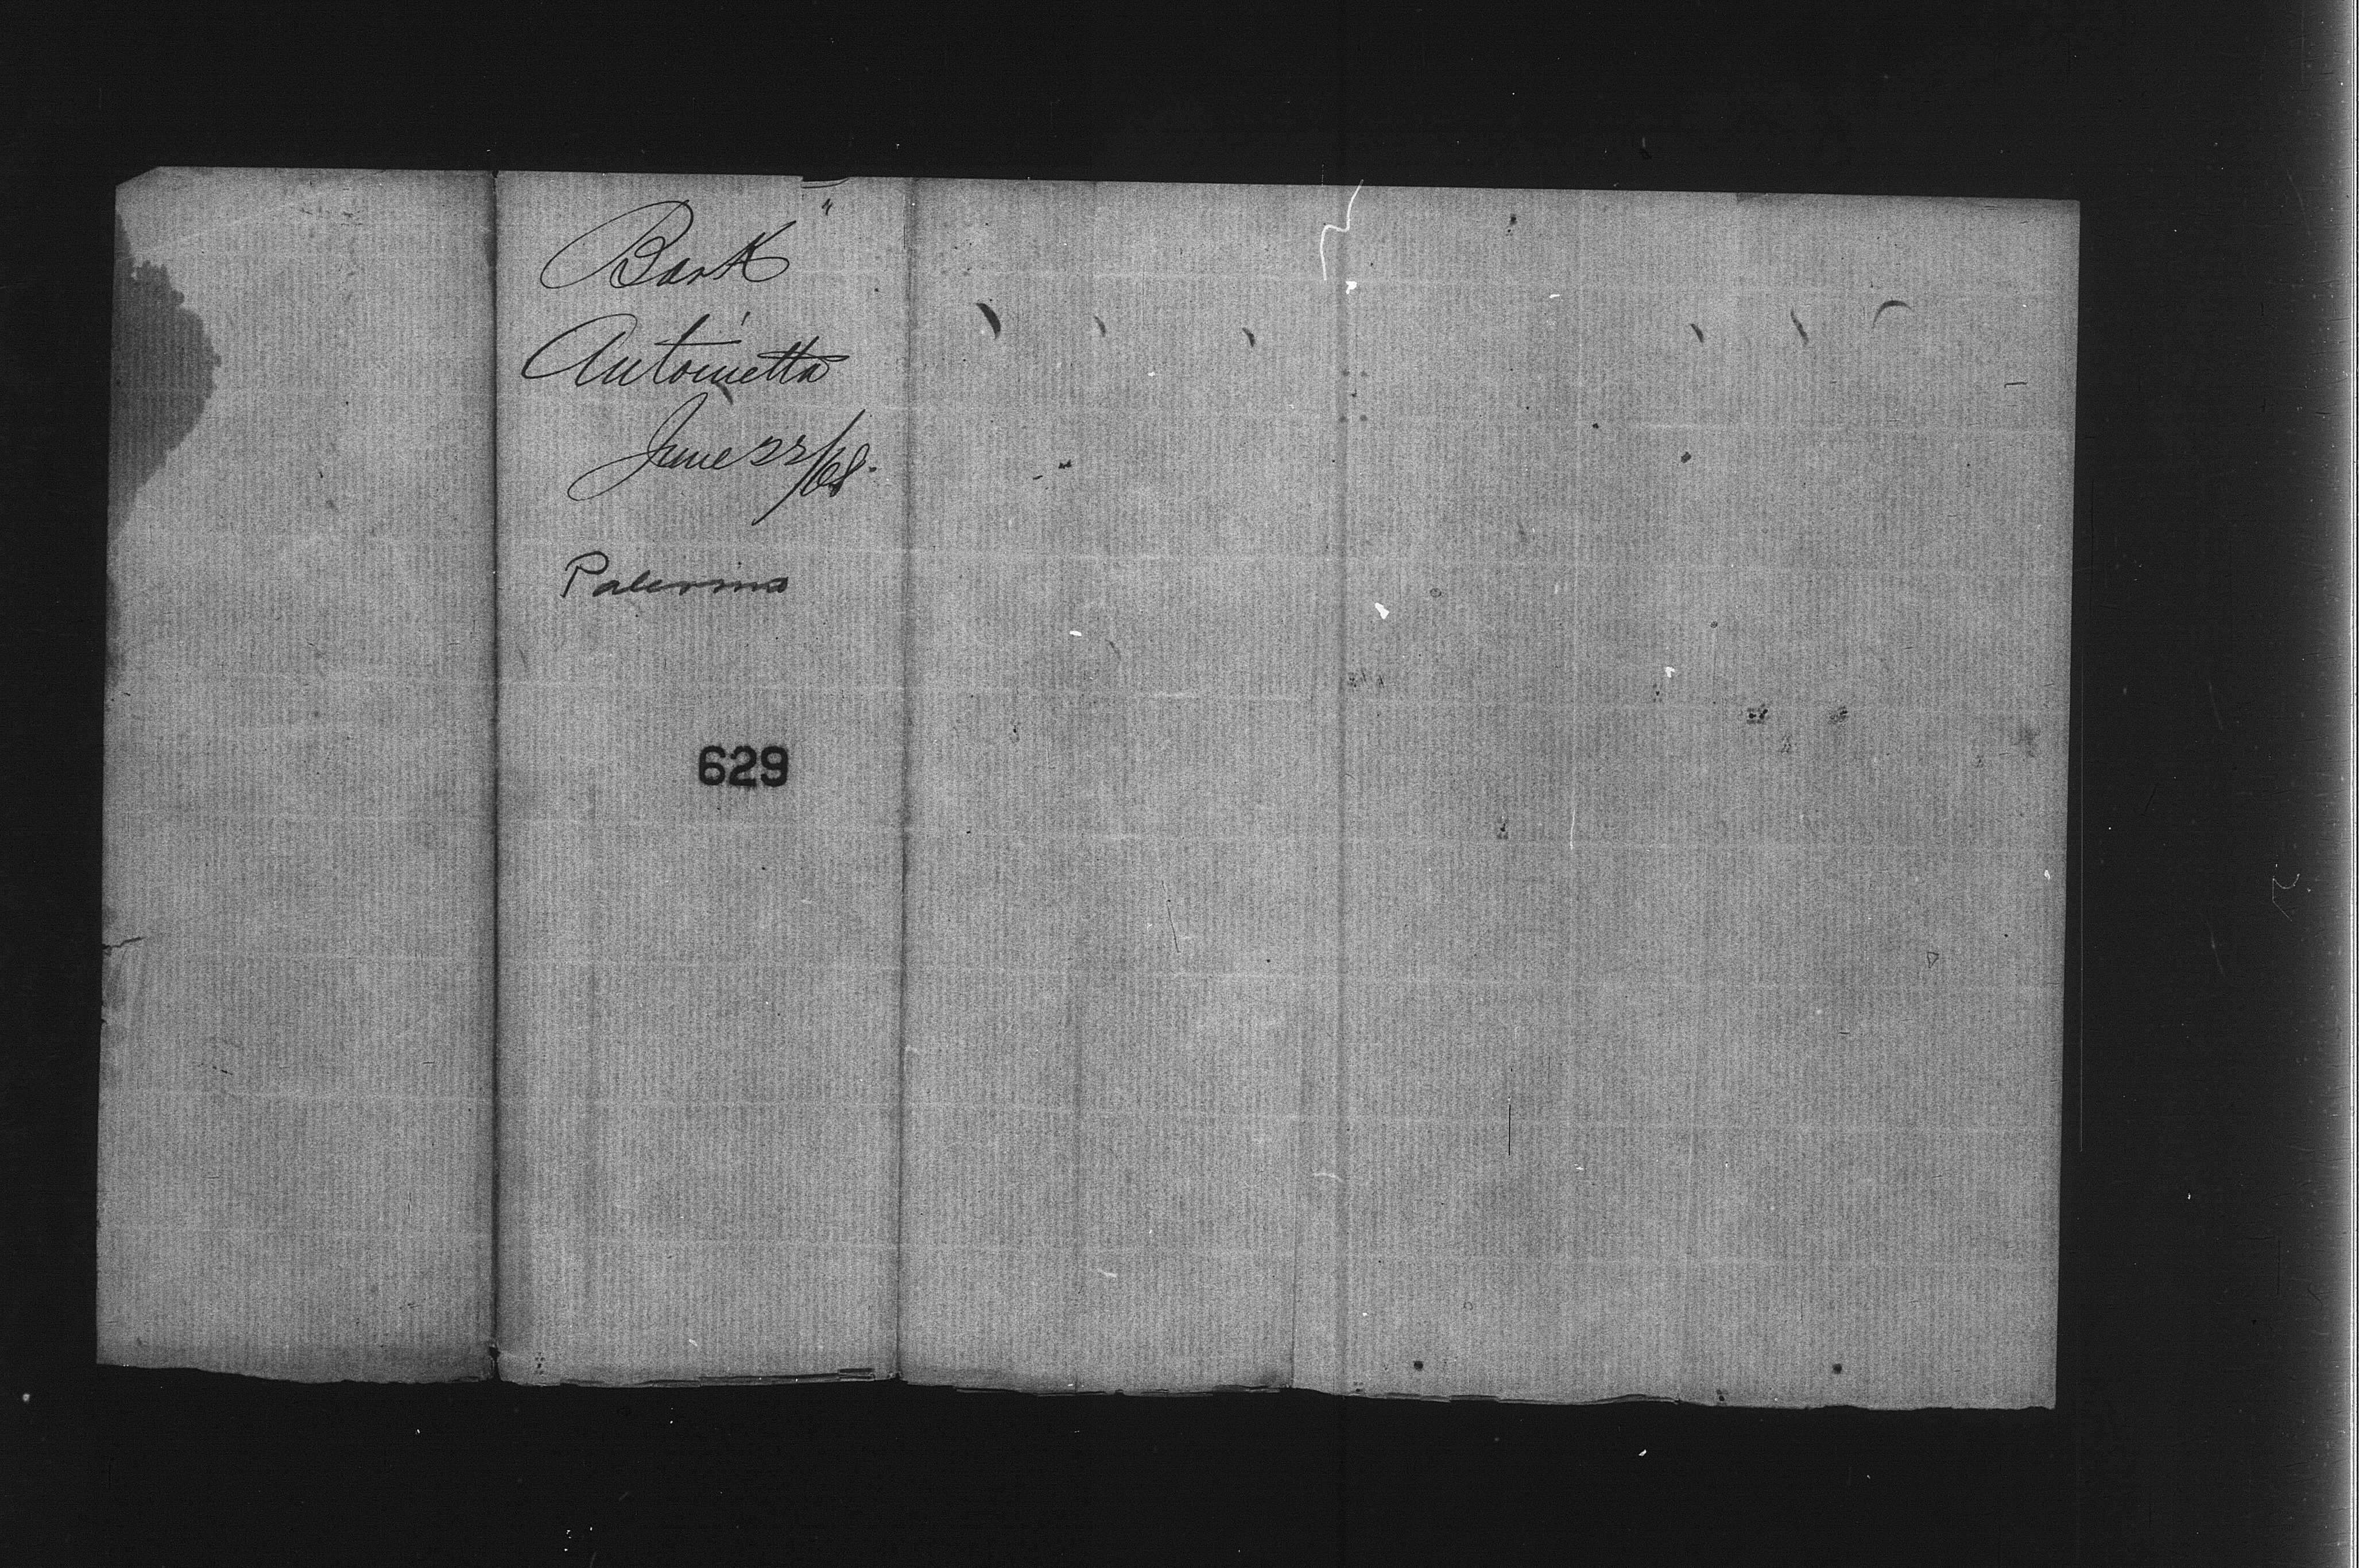 Bark "
Antoinetta
June 22/68.
Palermo
629